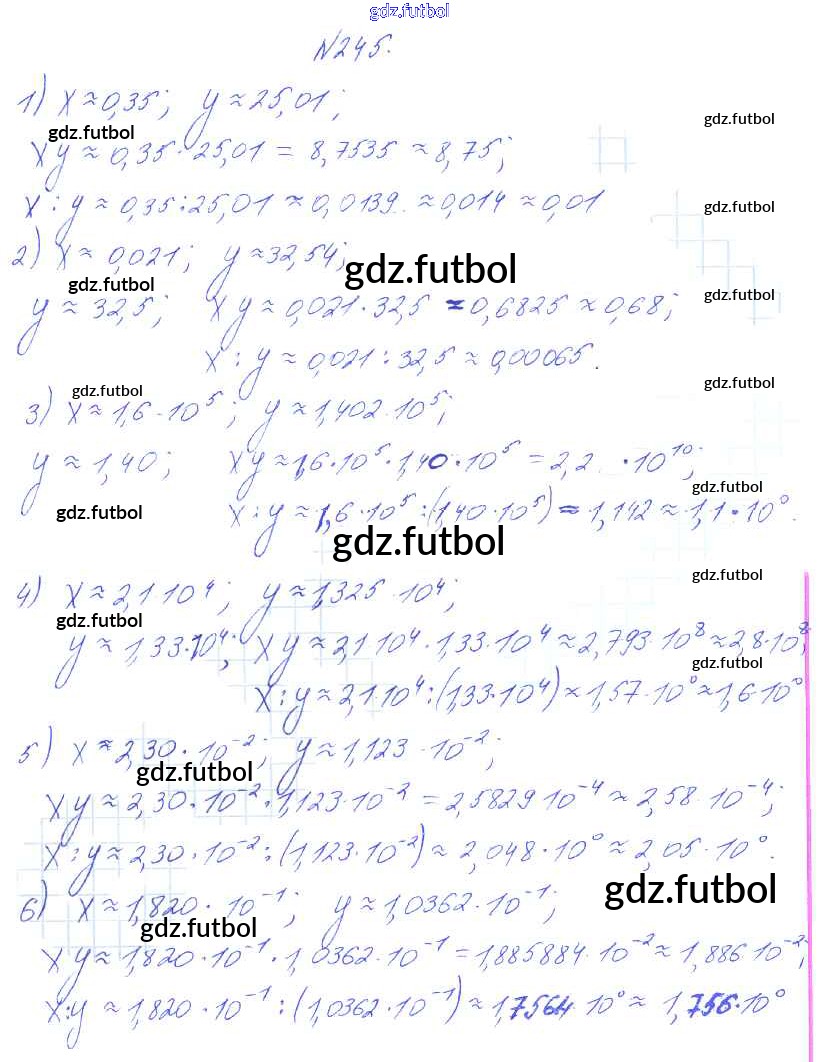 gdz.futbol
N245.
1) x ≈ 0,35; y ≈ 25,01;
gdz.futbol gdz.futbol
xy ≈ 0,35 · 25,01 = 8,7535 ≈ 8,75;
x : y ≈ 0,35 : 25,01 ≈ 0,0139.. ≈ 0,014 ≈ 0,01
gdz.futbol
2) x ≈ 0,021; y ≈ 32,54;
gdz.futbol
gdz.futbol gdz.futbol
y ≈ 32,5; xy ≈ 0,021 · 32,5 ≈ 0,6825 ≈ 0,68;
x : y ≈ 0,021 : 32,5 ≈ 0,00065.
gdz.futbol gdz.futbol
3) x ≈ 1,6 · 10⁵; y ≈ 1,402 · 10⁵;
y ≈ 1,40; xy ≈ 1,6 · 10⁵ · 1,40 · 10⁵ = 2,2 · 10¹⁰;
gdz.futbol
gdz.futbol x : y ≈ 1,6 · 10⁵ : (1,40 · 10⁵) ≈ 1,142 ≈ 1,1 · 10⁰.
gdz.futbol
gdz.futbol
4) x ≈ 2,1 10⁴; y ≈ 1,325 · 10⁴;
gdz.futbol
y ≈ 1,33 · 10⁴; xy ≈ 2,1 10⁴ · 1,33 · 10⁴ ≈ 2,793 · 10⁸ ≈ 2,8 · 10⁸;
gdz.futbol
x : y ≈ 2,1 10⁴ : (1,33 · 10⁴) ≈ 1,57 · 10⁰ ≈ 1,6 · 10⁰
5) x ≈ 2,30 · 10⁻²; y ≈ 1,123 · 10⁻²;
gdz.futbol
xy ≈ 2,30 · 10⁻² · 1,123 · 10⁻² = 2,5829 10⁻⁴ ≈ 2,58 · 10⁻⁴;
x : y ≈ 2,30 · 10⁻² : (1,123 · 10⁻²) ≈ 2,048 · 10⁰ ≈ 2,05 · 10⁰.
gdz.futbol
6) x ≈ 1,820 · 10⁻¹; y ≈ 1,0362 · 10⁻¹;
gdz.futbol
xy ≈ 1,820 · 10⁻¹ · 1,0362 · 10⁻¹ = 1,885884 · 10⁻² ≈ 1,886 10⁻²;
x : y ≈ 1,820 · 10⁻¹ : (1,0362 · 10⁻¹) ≈ 1,7564 · 10⁰ ≈ 1,756 · 10⁰